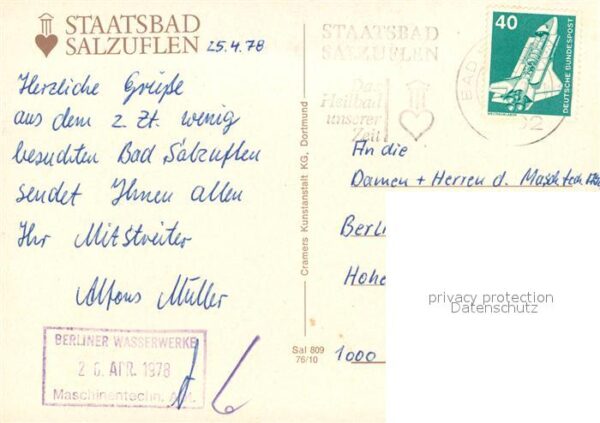 STAATSBAD
SALZUFLEN
25.4.78
Herzliche Grüße
aus dem z. Zt. wenig
besuchten Bad Salzuflen
sendet Ihnen allen
Ihr Mitstreiter
Alfons Müller
BERLINER WASSERWERKE
26. APR. 1978
Maschinentechn.
Cramers Kunstanstalt KG, Dortmund
Sal 809
76/10
STAATSBAD
SALZUFLEN
Das
Heilbad
unserer
Zeit
BAD
40
DEUTSCHE BUNDESPOST
An die
Damen + Herren d.
Berli
Hohe
1000
privacy protection
Datenschutz